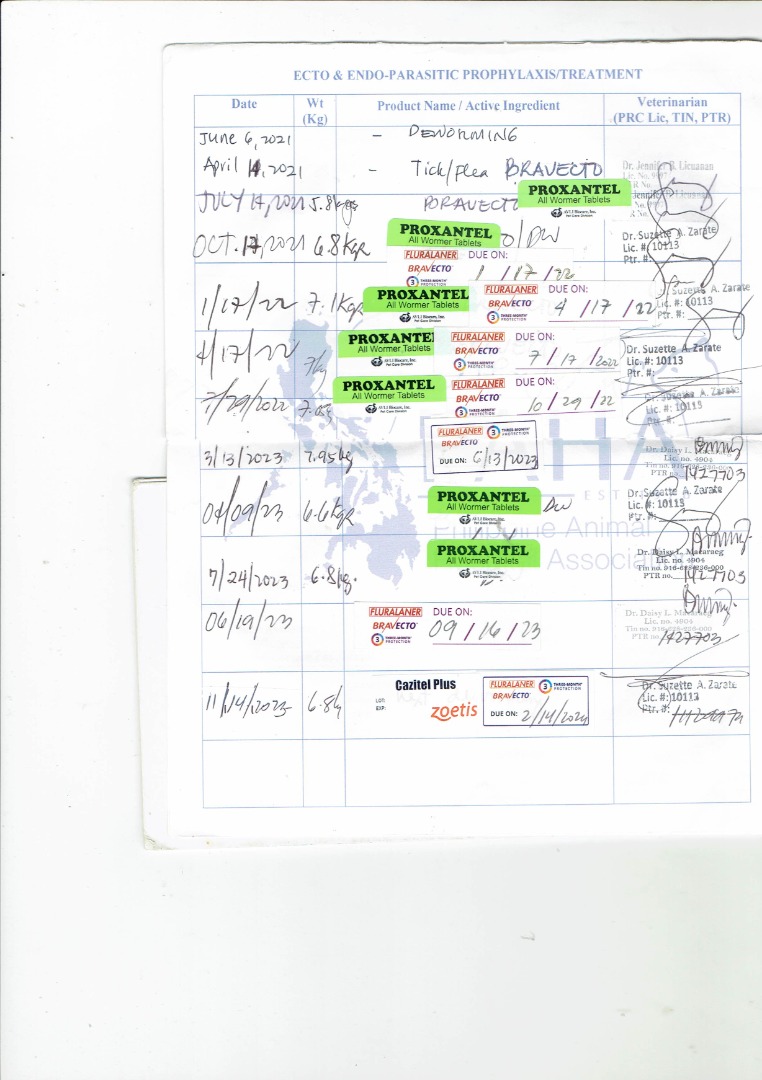 ECTO & ENDO-PARASITIC PROPHYLAXIS/TREATMENT
Date Wt (Kg) Product Name / Active Ingredient Veterinarian (PRC Lic, TIN, PTR)
June 6, 2021 - DEWORMING
April 14, 2021 - Tick/flea BRAVECTO
Dr. Jennifer B. Licuanan
JULY 17, 2021 5.8 kgs BRAVECTO PROXANTEL All Wormer Tablets
OCT. 17, 2021 6.8 Kgs PROXANTEL All Wormer Tablets /DW
FLURALANER BRAVECTO 3 THREE-MONTH PROTECTION DUE ON: 1/17/22
Dr. Suzette A. Zarate
Lic. #: 10113
Ptr. #:
1/17/22 7.1 Kgs PROXANTEL All Wormer Tablets FLURALANER BRAVECTO 3 THREE-MONTH PROTECTION DUE ON: 4/17/22
Suzette A. Zarate
Lic. #: 10113
Ptr. #:
4/17/22 7kg PROXANTEL All Wormer Tablets FLURALANER BRAVECTO 3 THREE-MONTH PROTECTION DUE ON: 7/17/2022
Dr. Suzette A. Zarate
Lic. #: 10113
Ptr. #:
7/29/2022 PROXANTEL All Wormer Tablets FLURALANER BRAVECTO 3 THREE-MONTH PROTECTION DUE ON: 10/29/22
Suzette A. Zarate
Lic. #: 10113
Ptr. #:
3/13/2023 7.95kg FLURALANER BRAVECTO 3 THREE-MONTH PROTECTION DUE ON: 6/13/2023
Dr. Daisy L.
Lic. no. 4904
1427703
04/09/23 6.6 Kgs PROXANTEL All Wormer Tablets DW
Dr. Suzette A. Zarate
Lic. #: 10113
Ptr. #:
Philippine Animal
Associa
7/24/2023 6.8kg. PROXANTEL All Wormer Tablets
Dr. Daisy L. Macaraeg
Lic. no. 4904
PTR no. 1427703
06/19/23 FLURALANER BRAVECTO 3 THREE-MONTH PROTECTION DUE ON: 09/16/23
Dr. Daisy L. Macaraeg
Lic. no. 4904
PTR no. 1427703
11/14/2023 6.8kg Cazitel Plus LOT: EXP: zoetis FLURALANER BRAVECTO 3 THREE-MONTH PROTECTION DUE ON: 2/14/2024
Dr. Suzette A. Zarate
Lic. #: 10113
Ptr. #: